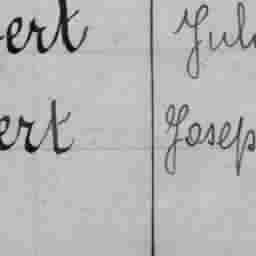 ert Jul
ert Josep